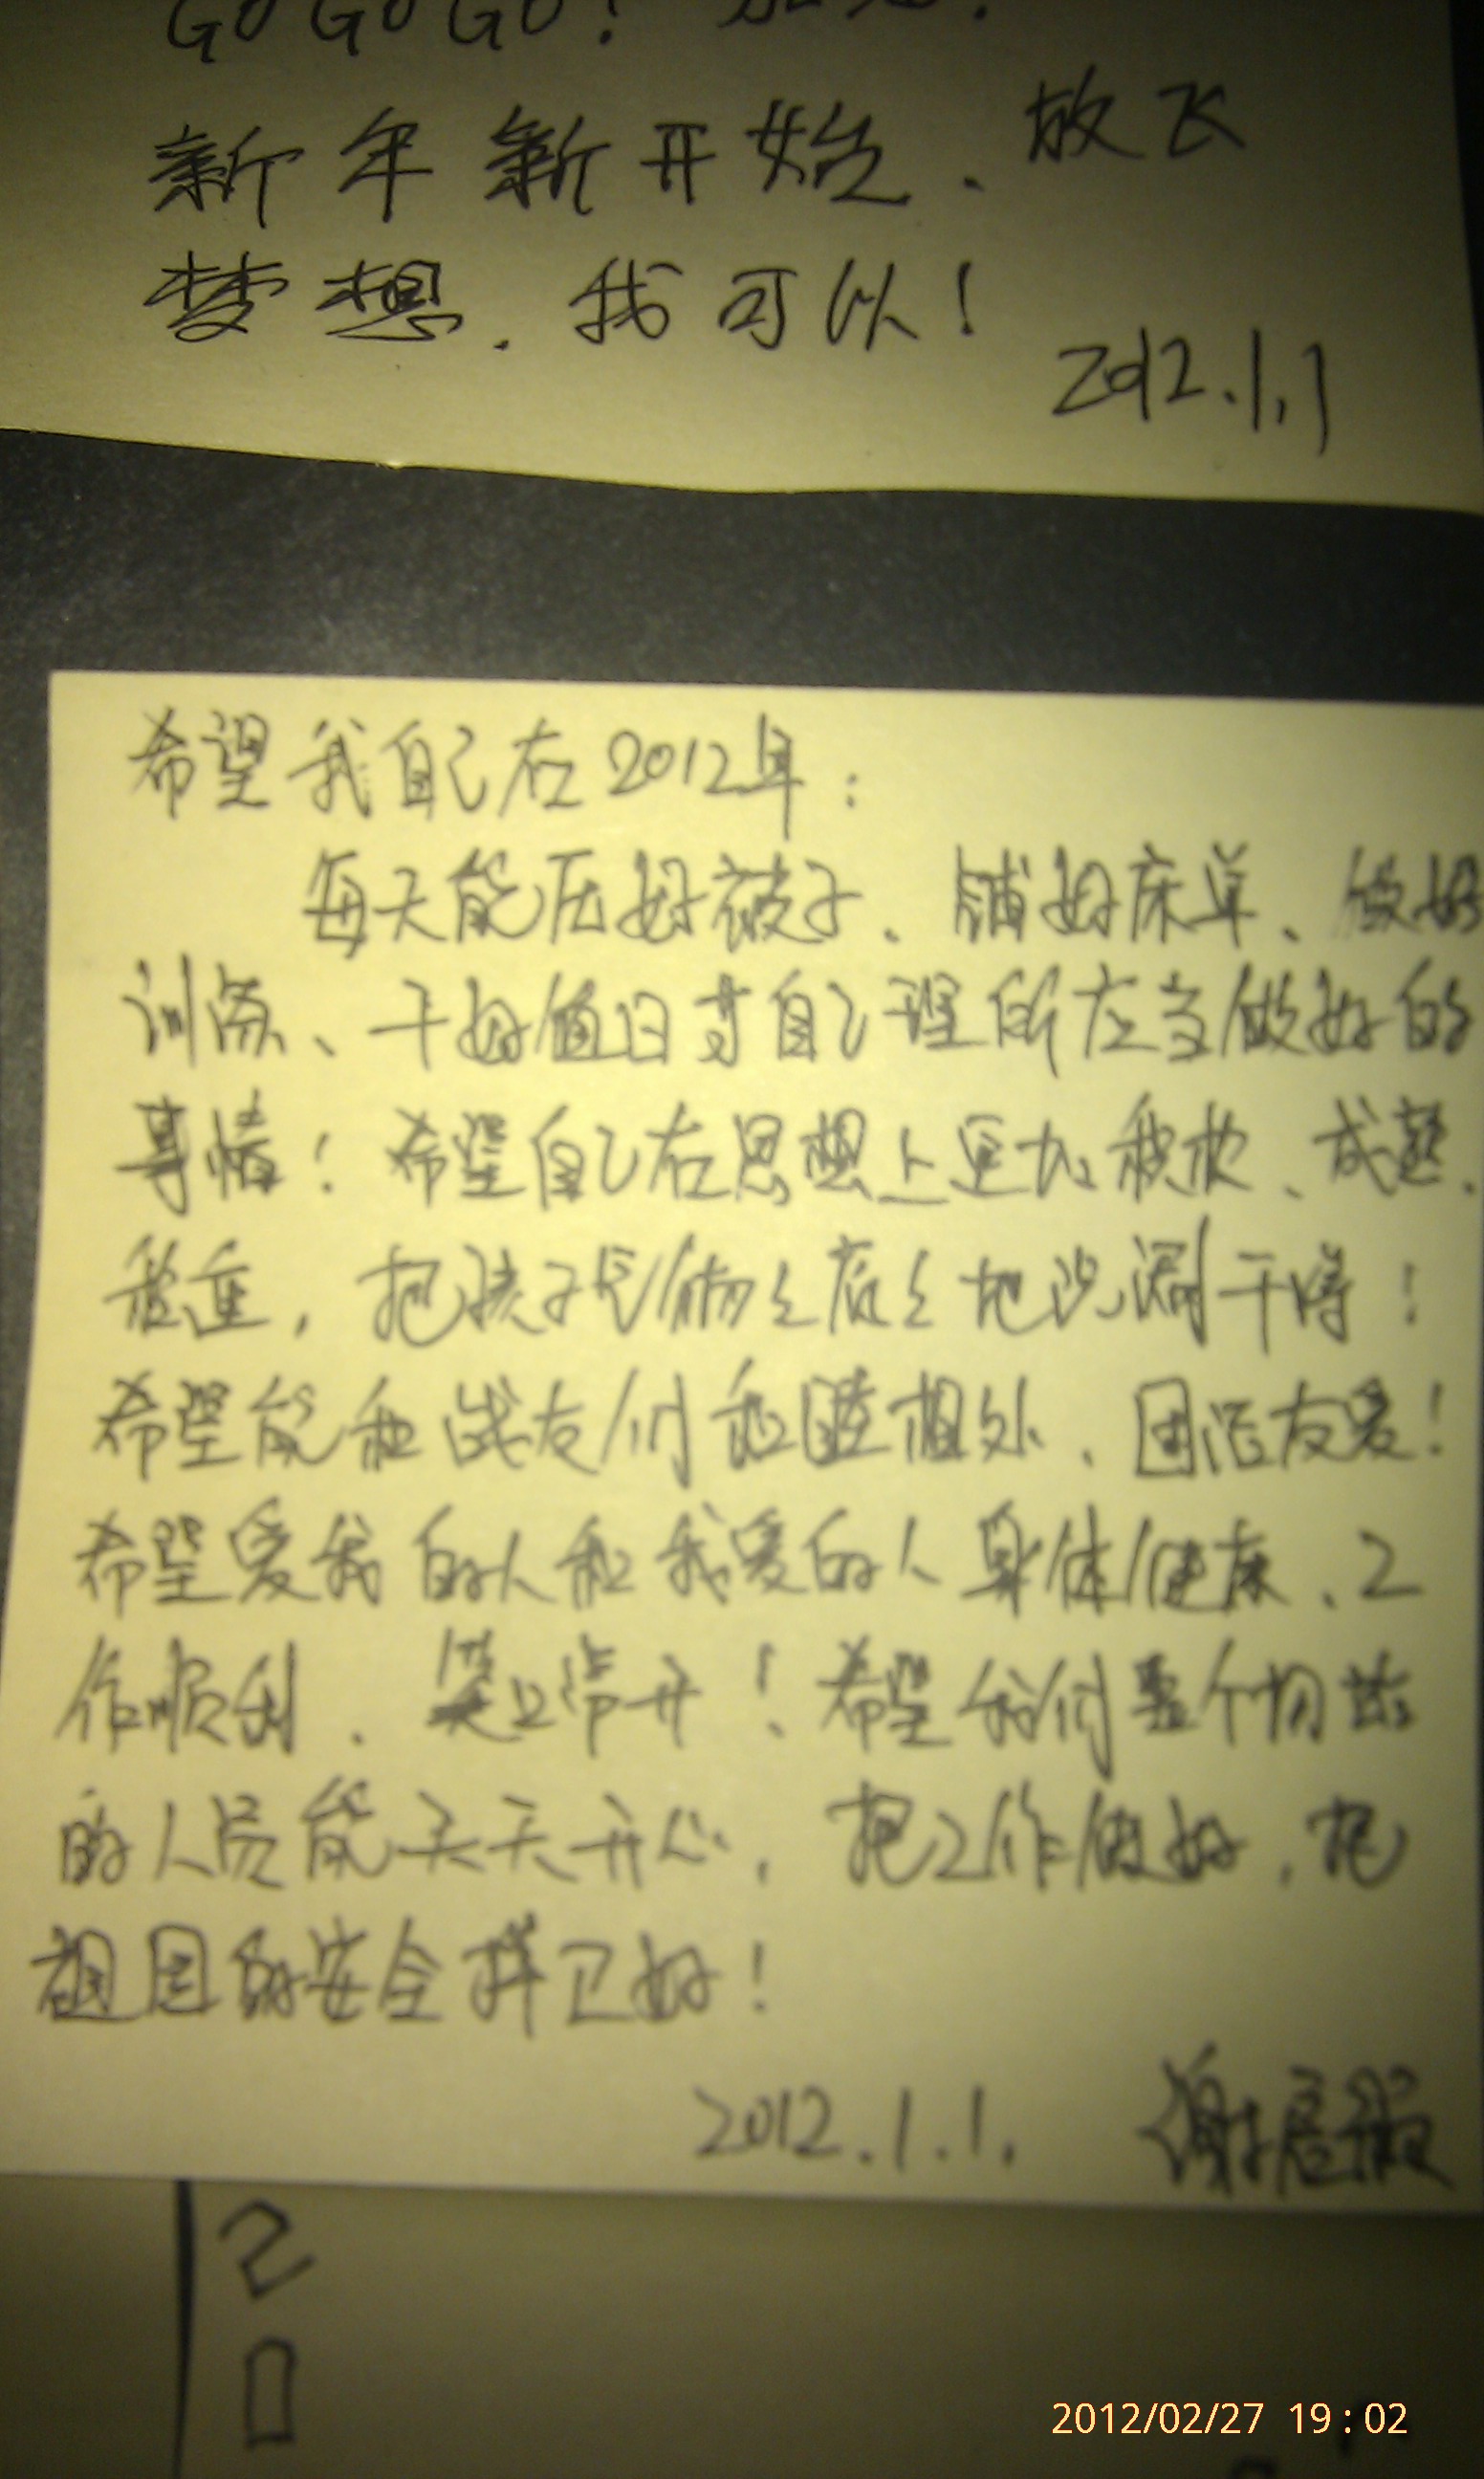 GO GO GO! 加油!
新年新开始、放飞
梦想,我可以!
2012.1.1
希望我自己在2012年:
每天能压好被子、铺好床单、做好
训练、干好值日等自己理所应当做好的
事情!希望自己在思想上更加积极、成熟、
稳重,把孩子气彻彻底底地洗涮干净!
希望能和战友们和睦相处、团结友爱!
希望爱我的人和我爱的人身体健康、工
作顺利、笑口常开!希望我们整个物勤
的人员能天天开心,把工作做好,把
祖国的安全捍卫好!
2012.1.1. 谢
2012/02/27 19:02